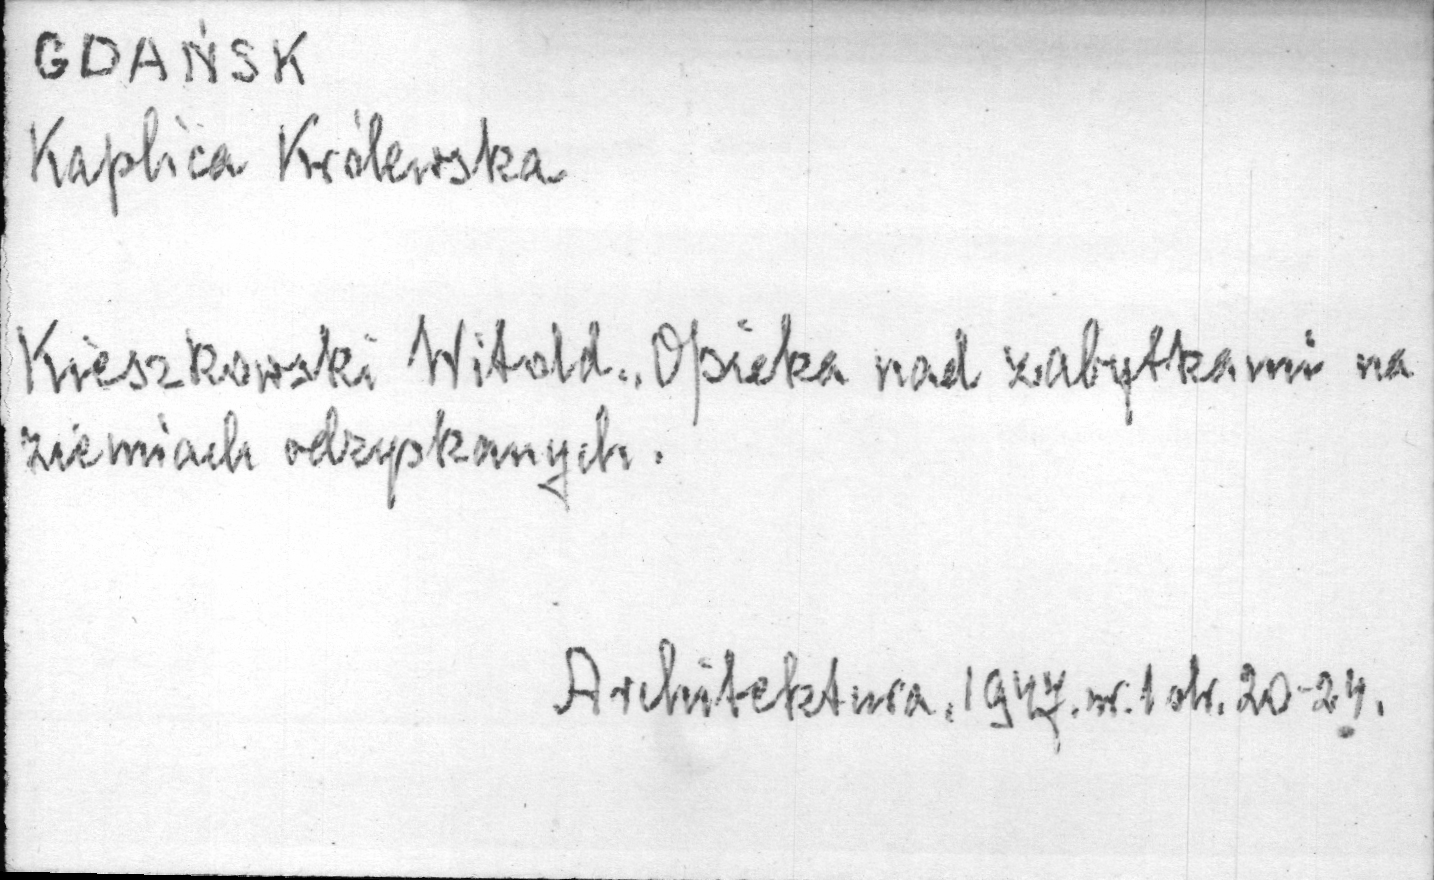 GDAŃSK
Kaplica Królewska
Kieszkowski Witold., Opieka nad zabytkami na
ziemiach odzyskanych.
Architektura, 1947. nr. 1 str. 20-24.